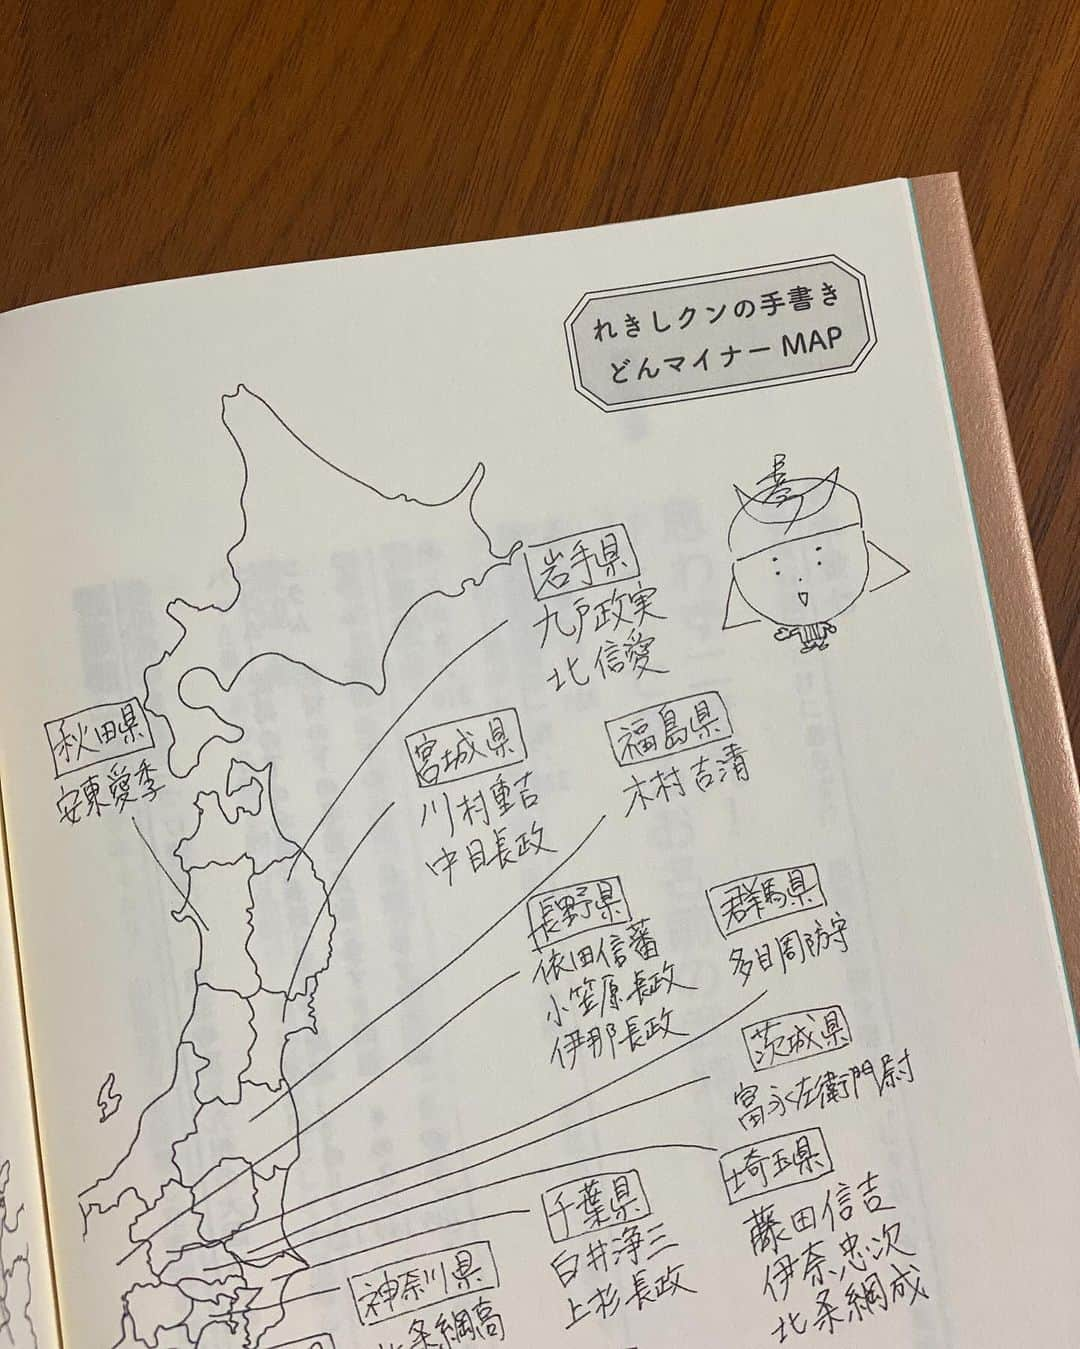 れきしクンの手書き
どんマイナーMAP
岩手県
九戸政実
北 信愛
秋田県
安東愛季
宮城県
川村重吉
中目長政
福島県
木村吉清
長野県
依田信蕃
小笠原長政
伊那長政
群馬県
多目周防守
茨城県
富永左衛門尉
埼玉県
藤田信吉
伊奈忠次
北条綱成
千葉県
白井浄三
上杉長政
神奈川県
北条綱高